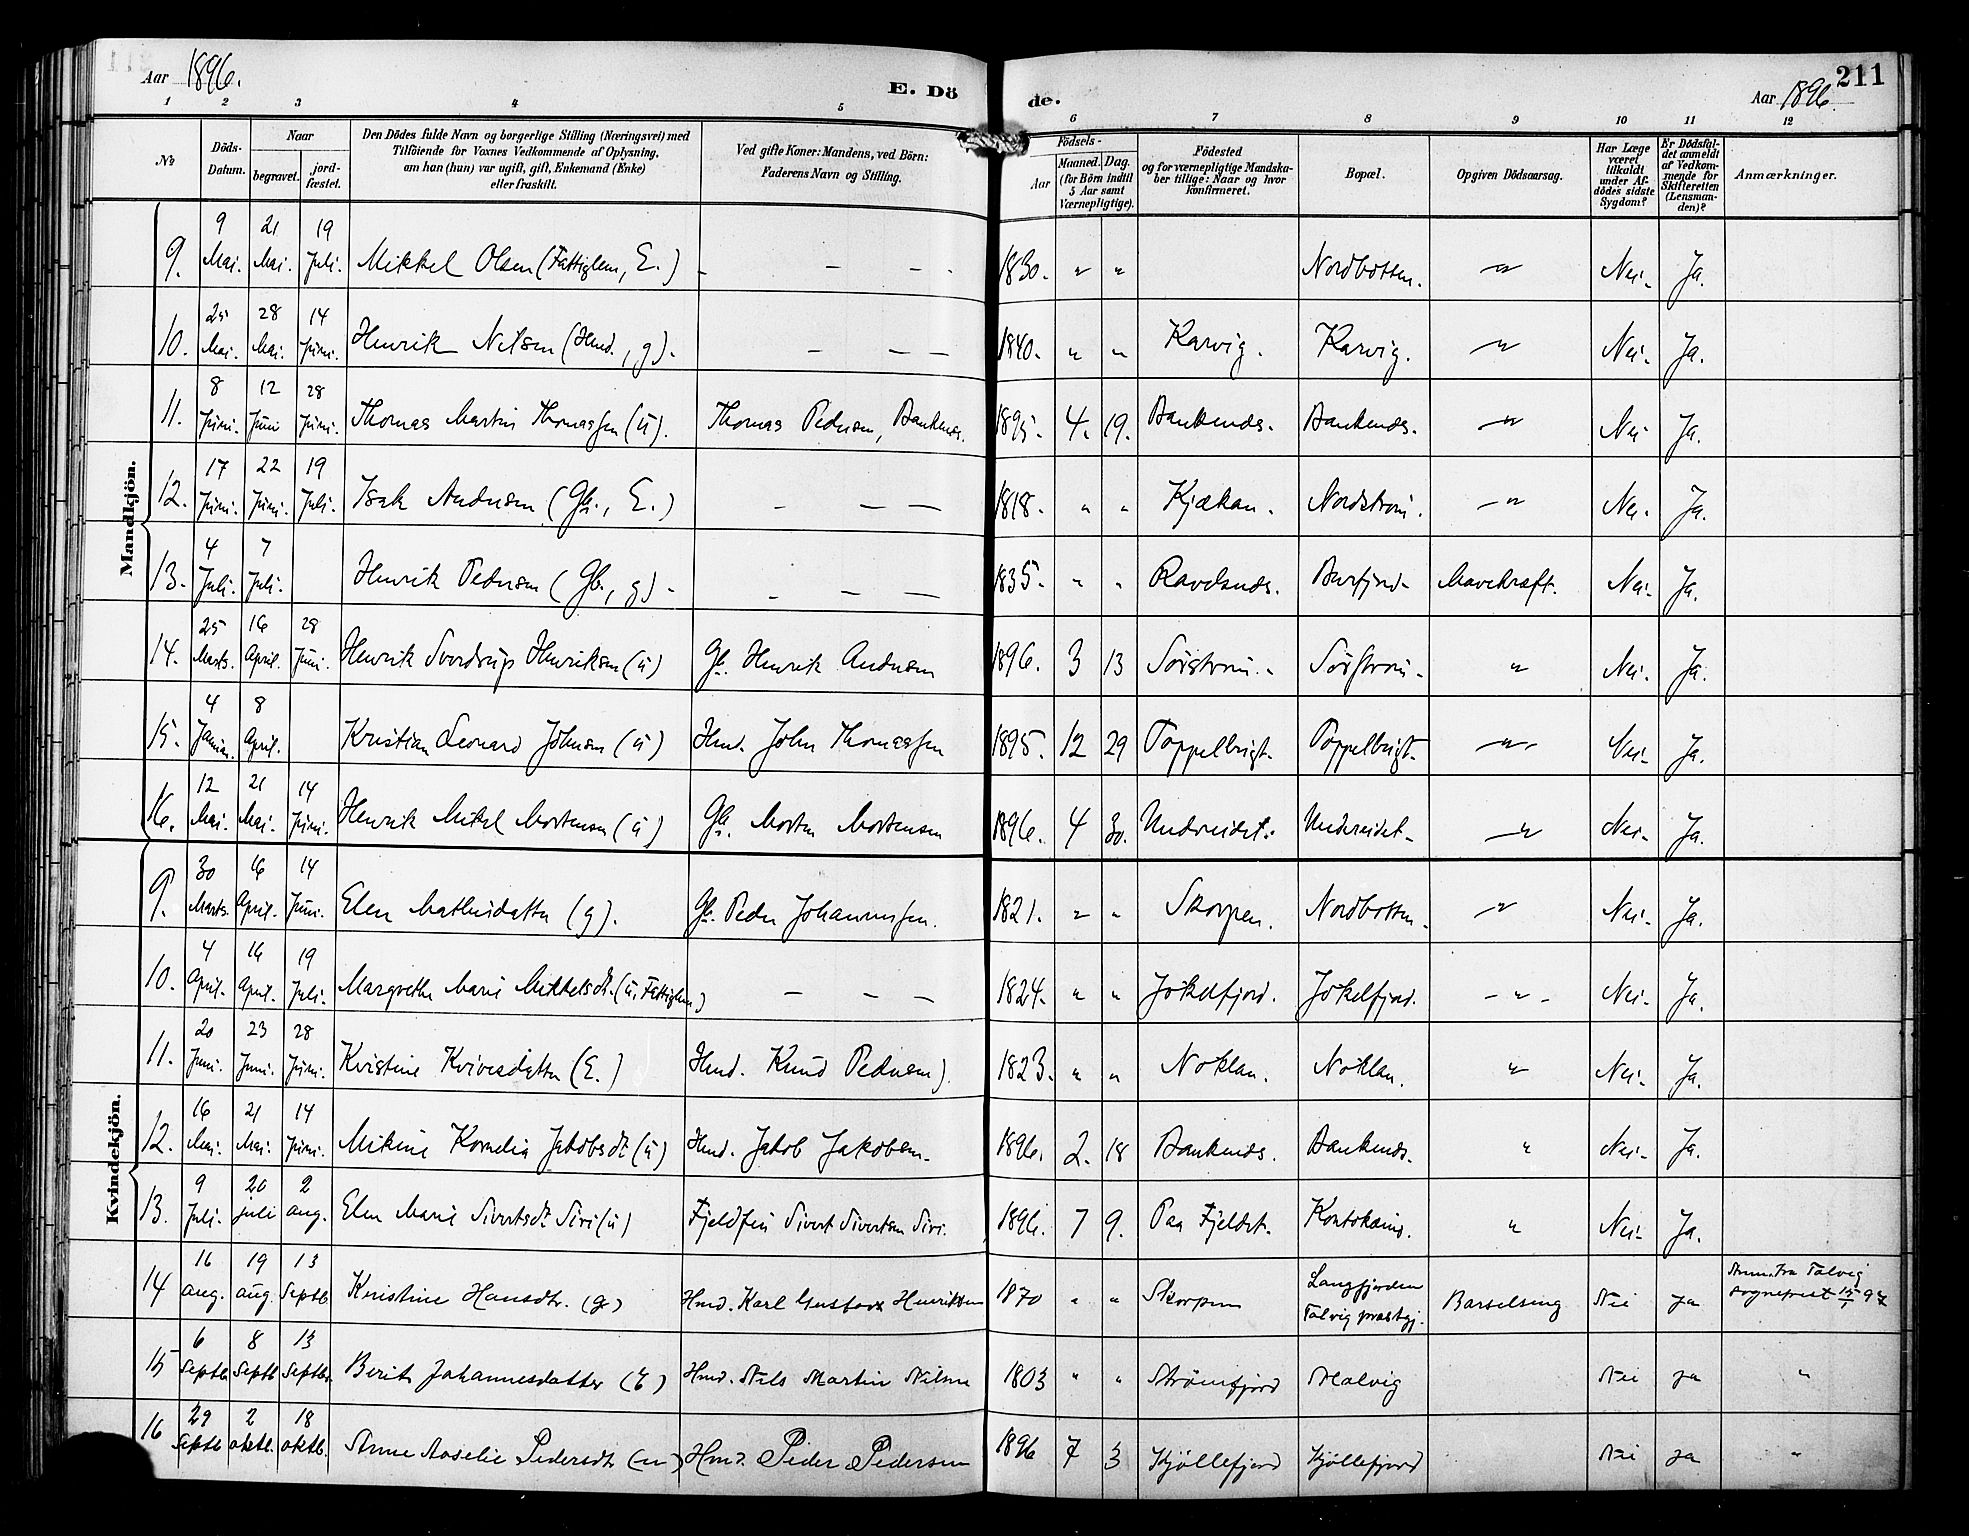 Aar 1896.
E. Dö
de.
Aar 1896
211
1 2 3 4 5 6 7 8 9 10 11 12
No
Döds-Datum.
Naar
begravet.
jord-fæstet.
Den Dödes fulde Navn og borgerlige Stilling (Næringsvei) med
Tilföiende for Voxnes Vedkommende af Oplysning,
om han (hun) var ugift, gift, Enkemand (Enke)
eller fraskilt.
Ved gifte Koner: Mandens, ved Börn:
Faderens Navn og Stilling.
Födsels-
Aar
Maaned. Dag.
(for Börn indtil
5 Aar samt
Værnepligtige).
Födested
og for værnepligtige Mandska-
ber tillige: Naar og hvor
konfirmeret.
Bopæl.
Opgiven Dödsaarsag.
Har Læge
været
tilkaldt
under Af-
dödes sidste
Sygdom?
Er Dödsfal-
det anmeldt
af Vedkom-
mende for
Skifteretten
(Lensman-
den)?
Anmærkninger.
Mandkjön.
9. 9 Mai. 21 Mai. 19 Juli. Mikkel Olsen (Fattiglem, E.) - - - - 1830. " " Nordbotten. " Nei. Ja.
10. 25 Mai. 28 Mai. 14 Juni. Henrik Nilsen (Hmd., g). - - - 1840. " " Karvig. Karvig. " Nei. Ja.
11. 8 Juni. 12 Juni 28 Juni. Thomas Martin Thomassen (ü). Thomas Pedersen, 1895. 4. 19. " Nei. Ja.
12. 17 Juni. 22 Juni. 19 Juli. Isak Andersen (Gb., E.) - - - 1818. " " Kjækan. Nordstrøm. " Nei. Ja.
13. 4 Juli. 7 Juli. Henrik Pedersen (Gb., g) - - - - 1835. " " Burfjord. Mavekræft. Nei. Ja.
14. 25 Marts. 16 April. 28 Juni. Henrik Sverdrup Henriksen (ü) Gb. Henrik Andersen 1896. 3 13 Sørstrøm. Sørstrøm. " Nei. Ja.
15. 4 Januar. 8 April. Kristian Leonard Johnsen (ü) Hmd. John Thomassen 1895. 12 29 Toppelbugt. Toppelbugt. " Nei. Ja.
16. 12 Mai. 21 Mai. 14 Juni. Henrik Mikel Mortensen (ü) Gb. Morten Mortensen 1896. 4 30. Undereidet. Undereidet. " Nei. Ja.
Kvindekjön.
9. 30 Marts. 16 April. 14 Juni. Elen Mathisdatter (g). Gb. Peder Johannessen. 1821. " " Skorpen. Nordbotten. " Nei. Ja.
10. 4 April. 16 April. 19 Juli. Margrethe Marie Mikkelsdt. (ü, Fattiglem) - - - 1824. " " Jøkelfjord. Jøkelfjord. - " - Nei. Ja.
11. 20 Juni. 23 Juni. 28 Juni. Kristine (E.) Hmd. Knud Pedersen). 1823. " " Noklan. Noklan. " Nei. Ja.
12. 16 Mai. 21 Mai. 14 Juni. Mikine Kornelia Jakobsdt (ü) Hmd. Jakob Jakobsen. 1896. 2. 18 " Nei. Ja.
13. 9 Juli. 20 juli 2 aug. Elen Marie Sivertsdt. Siri (ü) Fjeldfin Sivert Sivertsen Siri. 1896. 7 9. Paa Fjeldet. Koutokeino. " Nei. Ja.
14 16 aug. 19 aug. 13 Septb. Kristine Hansdtr. (g) Hmd. Karl Gustav Henriksen 1870 " " Skorpen Langfjorden Talvig præstgj. Barselseng Nei Ja Anm. fra Talvig sogneprest 15/1 97
15 6 Septb 8 Septb 13 Septbr. Berit Johannesdatter (E) Hmd. Nils Martin Nilsen 1803 " " Strømfjord Alalvig Nei Ja "
16 29 Septb 2 oktb. 18 oktb. Anne Aoselie Pedersdtr (u) Hmd. Peder Pedersen 1896 7 3 Kjøllefjord Kjøllefjord Nei Ja "